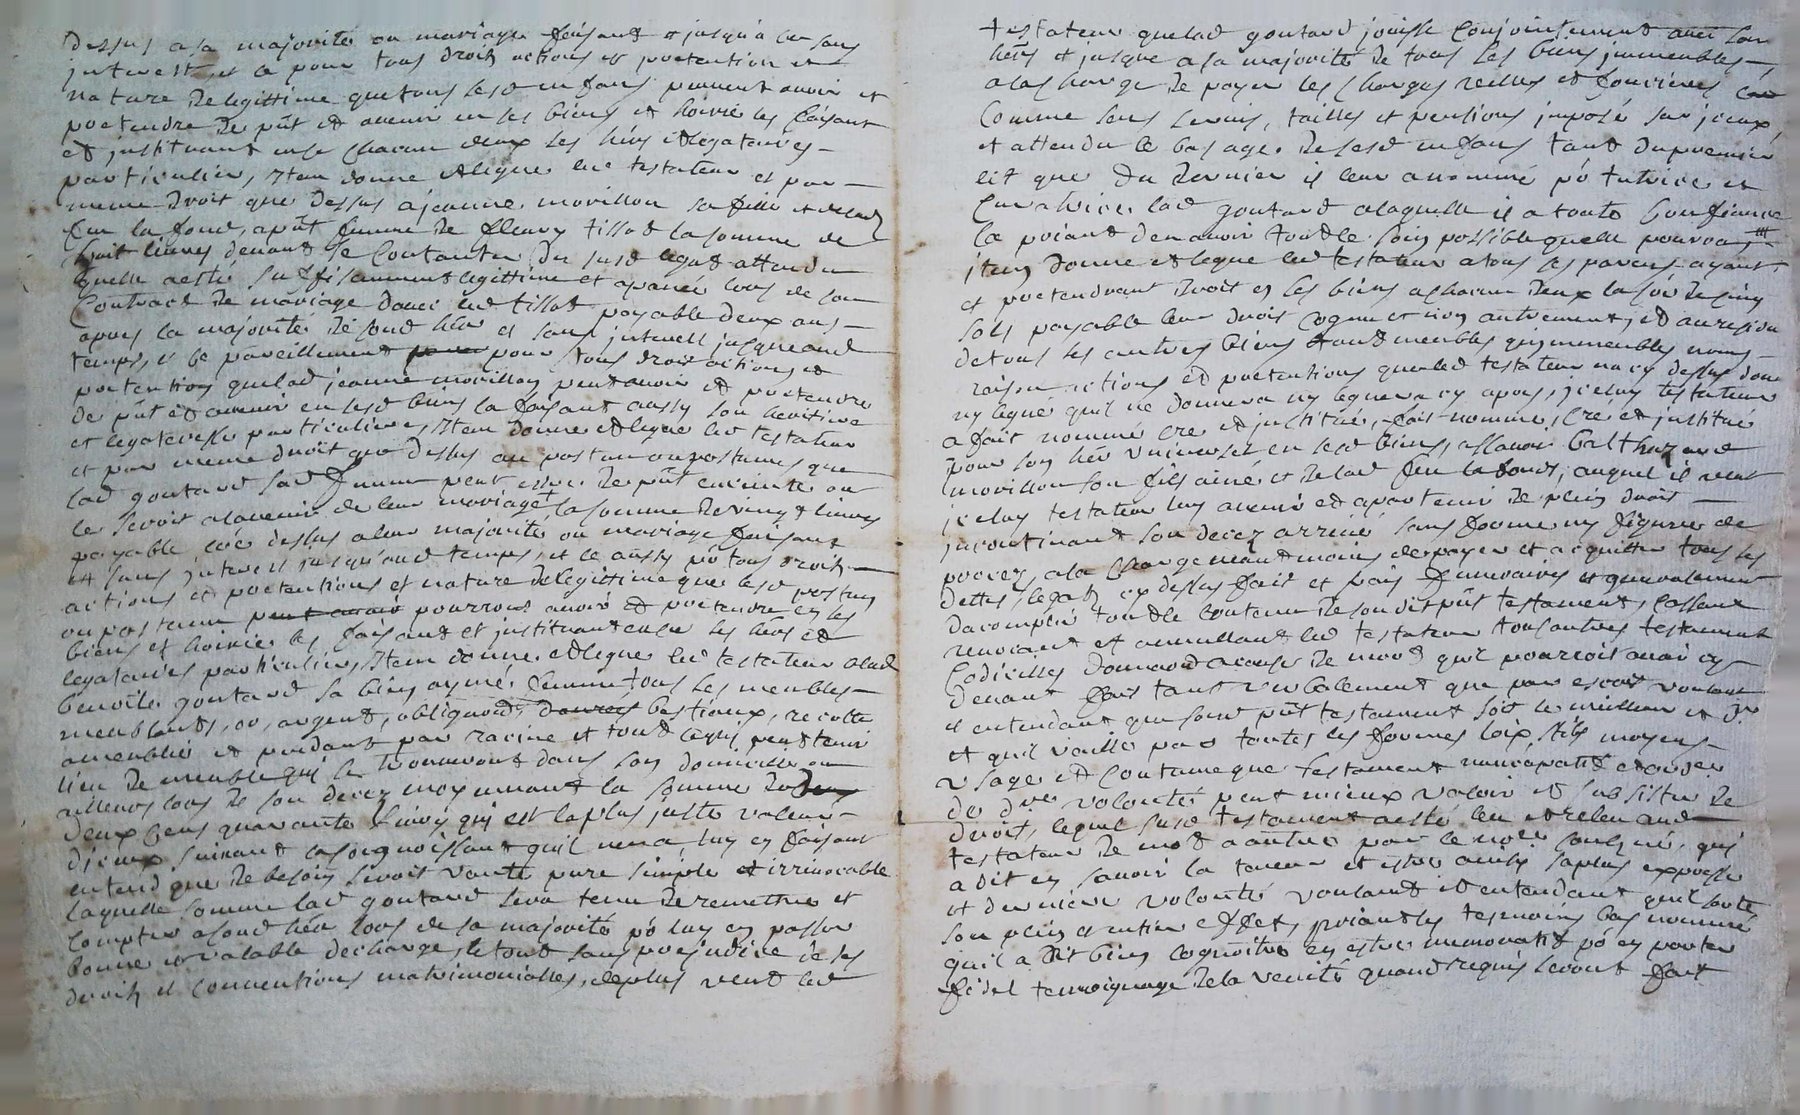 dessus a sa majorité ou mariage faisant et jusqu'a ce sans
interest, et ce pour tous droits actions et pretention et
nature de legittime que tous lesd enfans peuvent avoir et
pretendre de pñt et avenir en ses biens et hoirie les faisant
et instituant en ce chacun deux ses hers et legataires
particuliers, Item donne et legue led testateur et par
meme droit que dessus a jeanne morillon sa fille et de lad
feu la fond, apñt femme de fleury tissot la somme de
huit livres devant se contanter du susd legat attendu
quelle a esté suffisamment legittime et apanee lors de son
contract de mariage avec led tissot payable deux ans
apres la majorité de sond her et sans interest jusqueaud
temps, et ce pareillement pour tous droits actions et
pretention que lad jeanne morillon peut avoir et pretendre
de pñt et avenir en sesd biens la faisant aussy son heritiere
et legateresse particuliere, Item donne et legue led testateur
et par meme droit que dessus au postume ou postumes que
lad goutard sad femme peut estre de pñt enceinte ou
le seroit a lavenir de leur mariage la somme de vingt livres
payable cõe dessus a leur majorité ou mariage faisant
et sans interest jusqu'aud temps, et ce aussy pô tous droits
actions et pretentions et nature de legittime que lesd postum
ou postume peut avoir pourront avoir et pretendre en ses
biens et hoirie les faisant et instituant en ce ses hers et
legataires particuliers, Item donne et legue led testateur a lad
benoite goutard sa bien aymé femme tous ses meubles
meublants, or, argent, obligaõns, bestiaux, recolte
ameublie et pendant par racine et tout ce qui peut tenir
lieu de meuble qui se trouveront dans son domicille ou
ailleurs lors de son decez moyennant la somme de
deux cens quarante livres qui est la plus juste valeur
diceux suivant la cognoissant quil en a luy en faisant
entend que de besoin seroit vente pure simple et irrevocable
laquelle somme lad goutard sera tenu de remettre et
compter a sond her lors de sa majorité pô luy en passer
bonne et valable decharge, le tout sans prejudice de ses
droits et conventions matrimonialles, de plus veut led
testateur que lad goutard jouisse conjointement avec son
hers et jusque a sa majorité de tous ses biens immeubles
a la charge de payer les charges reelles et foncieres
comme sens servis, tailles et pentions imposé sur iceux,
et attendu le bas age de sesd enfans tant du premier
lit que du dernier il leur a nommé pô tutrice et
curatrice lad goutard a laquelle il a toute confiance
la priant den avoir tout le soin possible quelle pourra,
item donne et legue led testateur a tous ses parens ayant
et pretendvant droit en ses biens a chacun deux la sõe de cinq
sols payable leur droit cogneu et non autrement, et au residu
de tous ses autres biens tant meubles qu'immeubles noms
raison actions et pretentions que led testateur na cy dessus donné
ny legué quil ne donnera ny leguera cy apres, iceluy testateur
a fait nommé cre et institué, fait nomme, cré et institué
pour son her universel en sesd biens, assavoir balthazard
morillon son fils ainé et de lad feu la fond, auquel il veut
iceluy testateur luy avenir et apartenir de plein droit
incontinant son decez arrivé sans forme ny figure de
procez, a la charge neantmoins de payer et acquitter tous ses
dettes, legats cy dessus fait et frais funeraires et generalement
dacomplir tout le contenu de son dit pñt testament, cassant
revocant et annullant led testateur tous autres testament
codicilles donnaõn a cause de mort quil pourroit avoir cy
devant fait tant verbalement que par escrit voulant
il entendant que sond pñt testament soit le meilleur et dr
et quil vaille par toutes les formes loix stils moyens
usage et coutume que testament nuncupatif et ordre
de dre volonté peut mieux valoir et subsister de
droit, lequel susd testament a esté leu et releu aud
testateur de mot a autres par le nore soubsné, qui
a dit en savoir la teneur et estre ainsi sa plus expresse
et derniere volonté voulant et entendant quil sorte
son plein et entier effet, priant les tesmoins bas nommé
quil a dit bien cognoitre en estre memoratif pô en porter
fidel temoignage de la verité quand requis seront fait